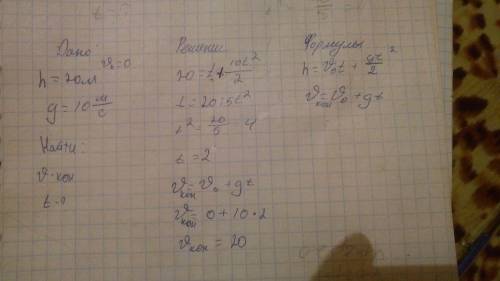 Дано:
υ₀=0
h=20м
g=10 м/с
Найти:
υ кон
t-?
Решение
20=t+10t²/2
t=20:5t²
t²=20/5 4
t=2
υкон=υ₀+gt
υкон=0+10·2
υкон=20
Формулы
h=υ₀t+gt²/2
υкон=υ₀+gt